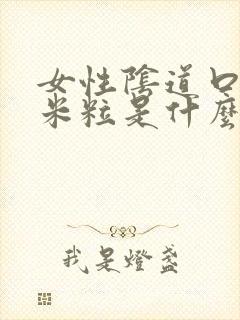 女性陰道口
米粒是什麼
我是燈盞